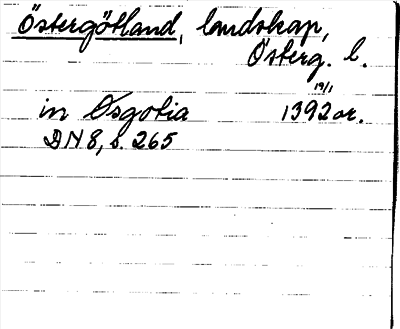 Östergötland, landskap,
Österg. l.
19/1
in Osgotia 1392 or.
DN 8, s. 265